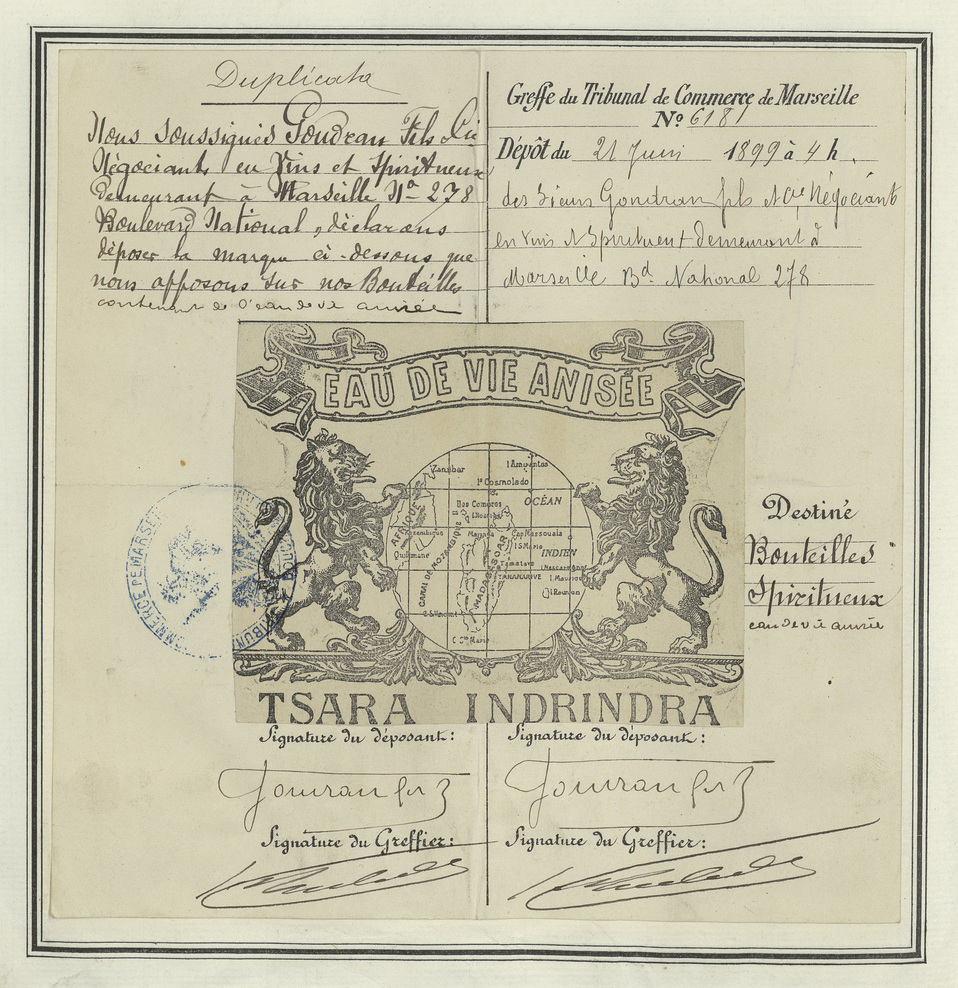 Duplicata
Nous soussignés Goudran Fils & Cie
Négociants en Vins et Spiritueux
Demeurant à Marseille No 278
Boulevard National, déclarons
déposer la marque ci-dessous que
nous apposons sur nos Bouteilles
contenant de l'eau de vie anisée
Greffe du Tribunal de Commerce de Marseille
No 6181
Dépôt du 21 Juin 1899 à 4 h.
des Sieurs Gondran fils & Cie Négociants
en Vins & Spiritueux demeurant à
Marseille Bd. National 278
EAU DE VIE ANISÉE
Zanzibar
I. Amirantes
Is Cosmoledo
OCÉAN
Iles Comores
AFRIQUE
Cap Massouala
I. S. Marie
INDIEN
Quilimane
Tamatave
I. Mascareignes
CANAL DE MOZAMBIQUE
MADAGASCAR
TANANARIVE
I. Maurice
I. Réunion
C. Ste Marie
TSARA INDRINDRA
Destiné
Bouteilles
Spiritueux
eau de vie anisée
Signature du déposant:
Signature du déposant:
Signature du Greffier:
Signature du Greffier: